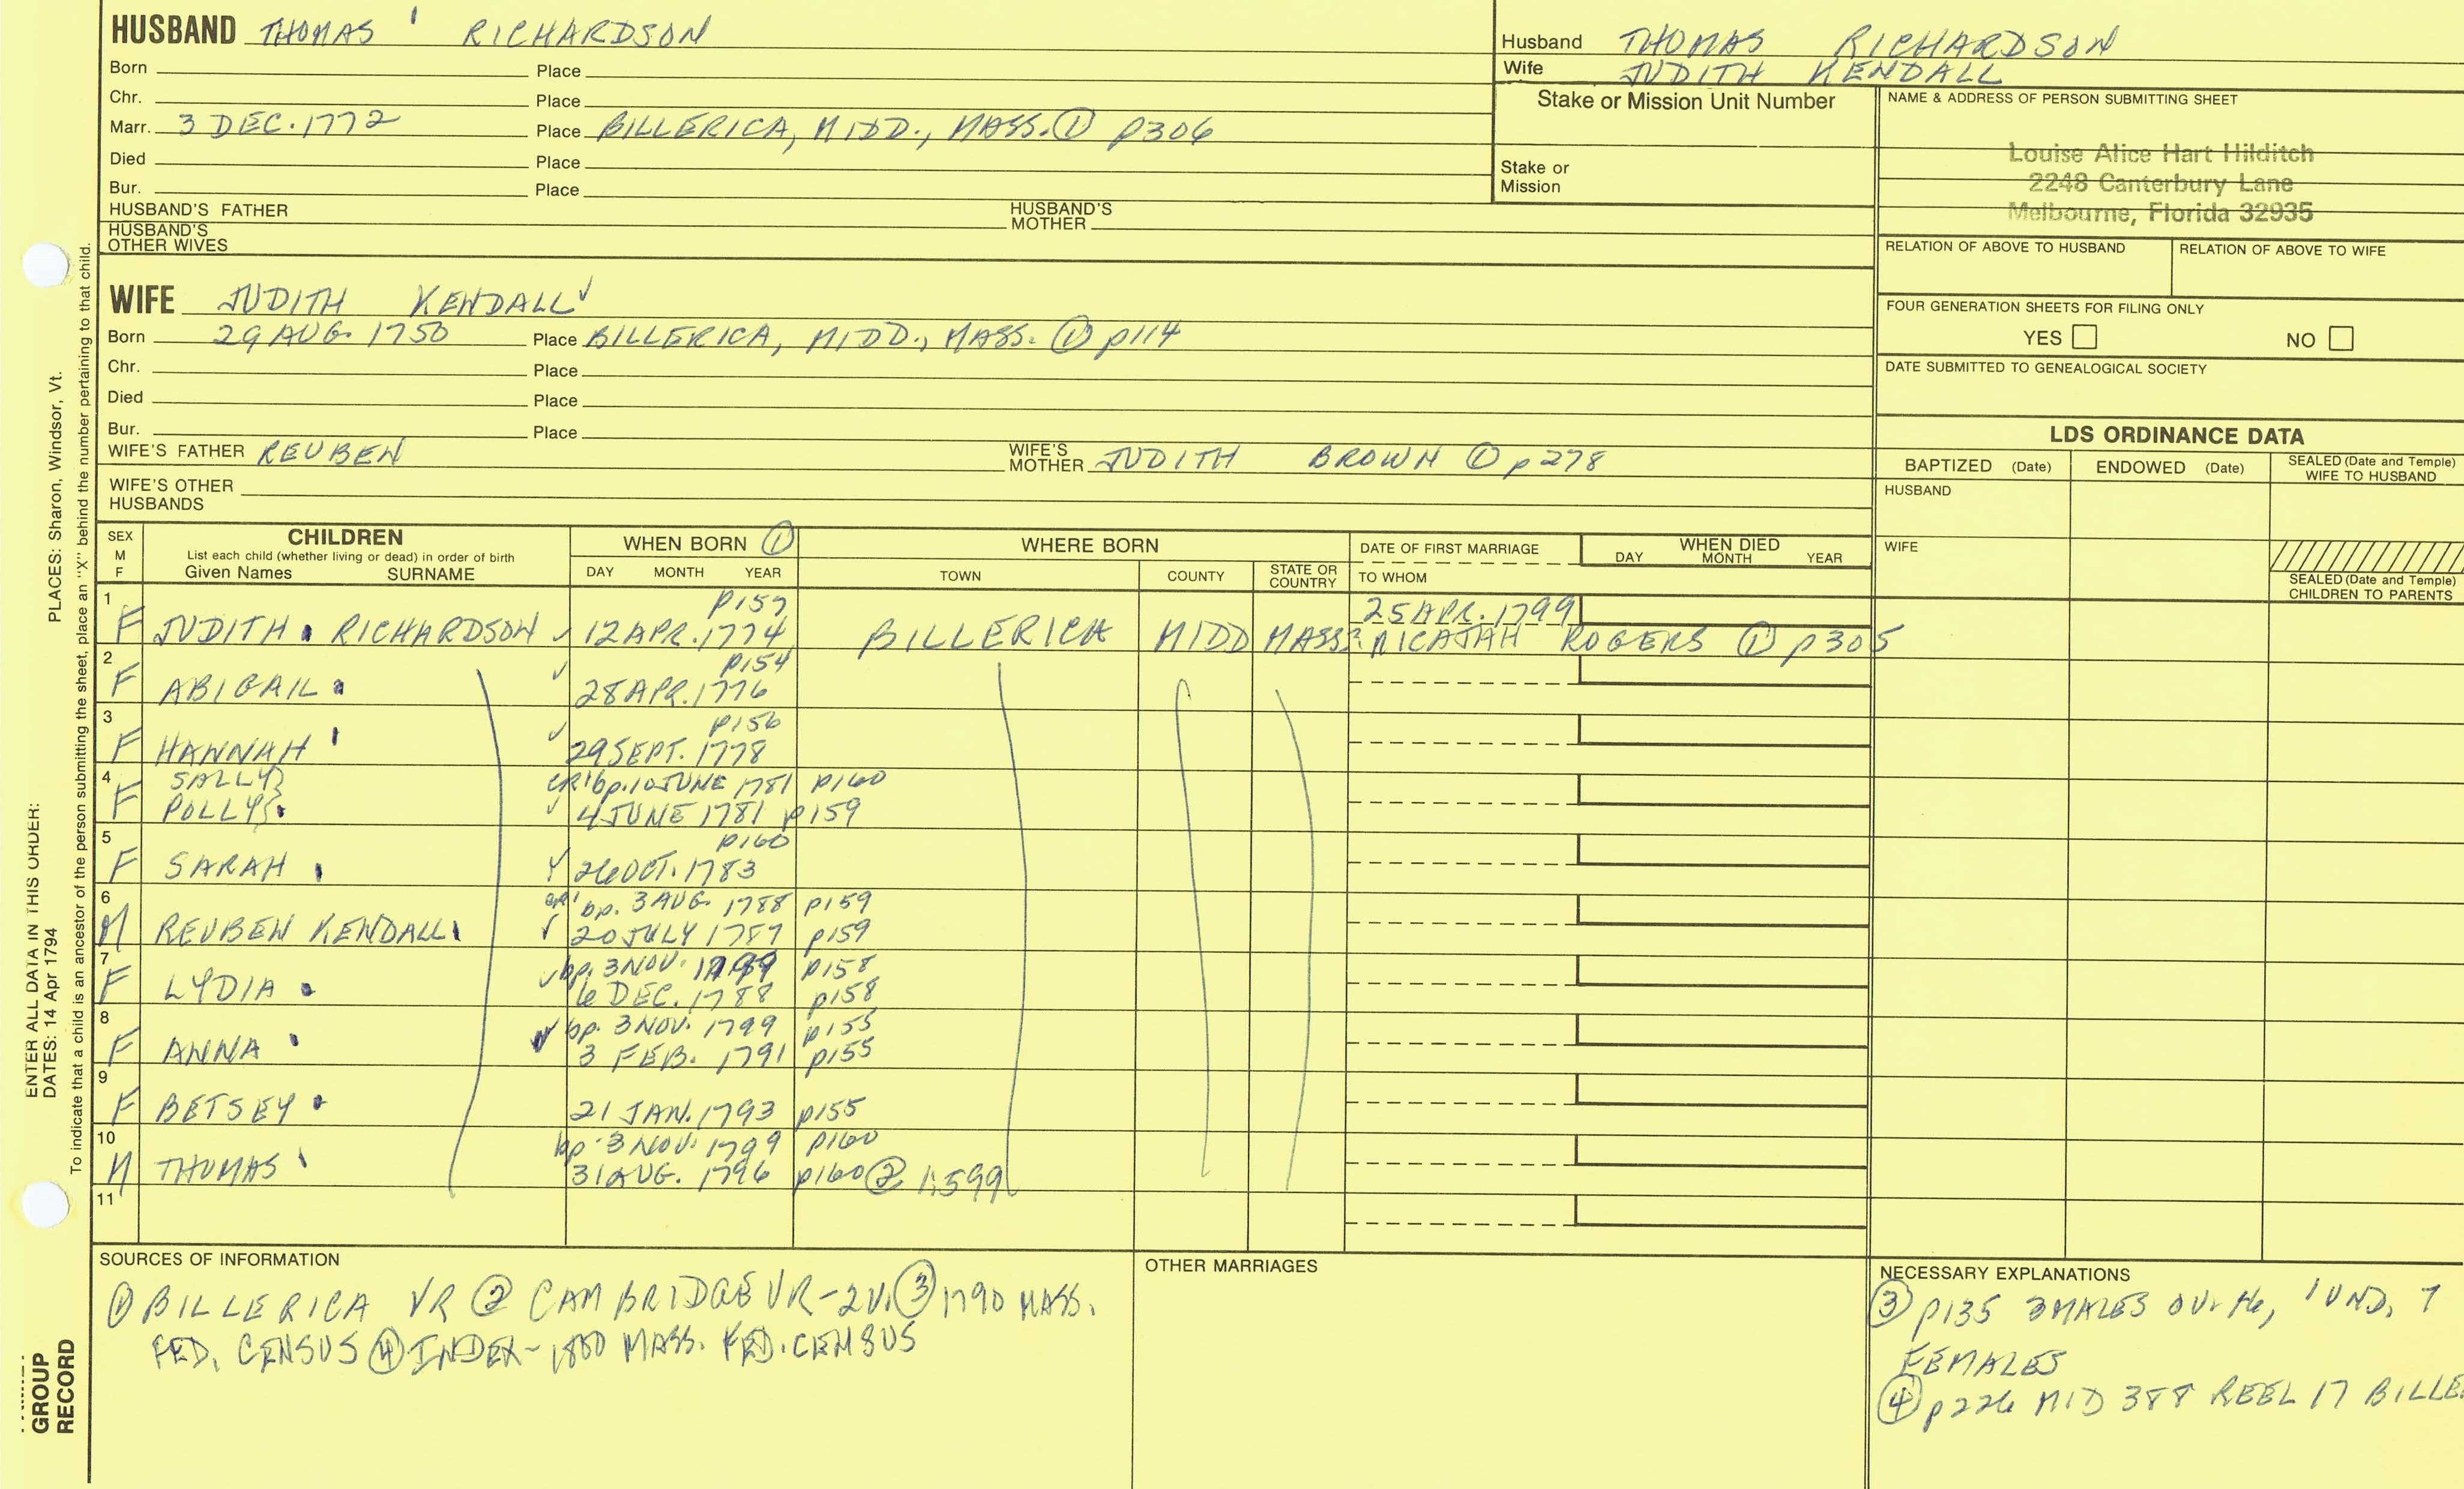 HUSBAND THOMAS RICHARDSON
Born Place
Chr. Place
Marr. 3 DEC. 1772 Place BILLERICA, MIDD., MASS. ① p306
Died Place
Bur. Place
HUSBAND'S FATHER HUSBAND'S MOTHER
HUSBAND'S OTHER WIVES
Husband THOMAS RICHARDSON
Wife JUDITH KENDALL
Stake or Mission Unit Number
Stake or Mission
NAME & ADDRESS OF PERSON SUBMITTING SHEET
Louise Alice Hart Hilditch
2248 Canterbury Lane
Melbourne, Florida 32935
RELATION OF ABOVE TO HUSBAND RELATION OF ABOVE TO WIFE
FOUR GENERATION SHEETS FOR FILING ONLY
YES NO
DATE SUBMITTED TO GENEALOGICAL SOCIETY
WIFE JUDITH KENDALL ✓
Born 29 AUG. 1750 Place BILLERICA, MIDD., MASS. ① p114
Chr. Place
Died Place
Bur. Place
WIFE'S FATHER REUBEN WIFE'S MOTHER JUDITH BROWN ① p278
WIFE'S OTHER HUSBANDS
LDS ORDINANCE DATA
BAPTIZED (Date) ENDOWED (Date) SEALED (Date and Temple) WIFE TO HUSBAND
HUSBAND
WIFE
SEALED (Date and Temple) CHILDREN TO PARENTS
SEX M F
CHILDREN
List each child (whether living or dead) in order of birth
Given Names SURNAME
WHEN BORN ①
DAY MONTH YEAR
WHERE BORN
TOWN COUNTY STATE OR COUNTRY
DATE OF FIRST MARRIAGE
TO WHOM
WHEN DIED
DAY MONTH YEAR
1 p157 25 APR. 1799
F JUDITH RICHARDSON ✓ 12 APR. 1774 BILLERICA MIDD MASS. MICAJAH ROGERS ① p305
2 ✓ p154
F ABIGAIL 28 APR. 1776
3 ✓ p156
F HANNAH 29 SEPT. 1778
4 SALLY} CR1 bp. 10 JUNE 1781 p160
F POLLY} ✓ 4 JUNE 1781 p159
5 p160
F SARAH ✓ 26 OCT. 1783
6 CR1 bp. 3 AUG. 1788 p159
M REUBEN KENDALL ✓ 20 JULY 1787 p159
7 ✓ bp. 3 NOV. 1799 p158
F LYDIA 6 DEC. 1788 p158
8 ✓ bp. 3 NOV. 1799 p155
F ANNA 3 FEB. 1791 p155
9
F BETSEY 21 JAN. 1793 p155
10 bp. 3 NOV. 1799 p160
M THOMAS 31 AUG. 1796 p160 ② 1:599
11
SOURCES OF INFORMATION
① BILLERICA VR ② CAMBRIDGE VR-2V. ③ 1790 MASS.
FED. CENSUS ④ INDEX- 1800 MASS. FED. CENSUS
OTHER MARRIAGES
NECESSARY EXPLANATIONS
③ p135 3 MALES OVR 16, 1 UND, 7
FEMALES
④ p226 MID 388 REEL 17 BILLE
ENTER ALL DATA IN THIS ORDER:
DATES: 14 Apr 1794 PLACES: Sharon, Windsor, Vt.
To indicate that a child is an ancestor of the person submitting the sheet, place an "X" behind the number pertaining to that child.
GROUP
RECORD